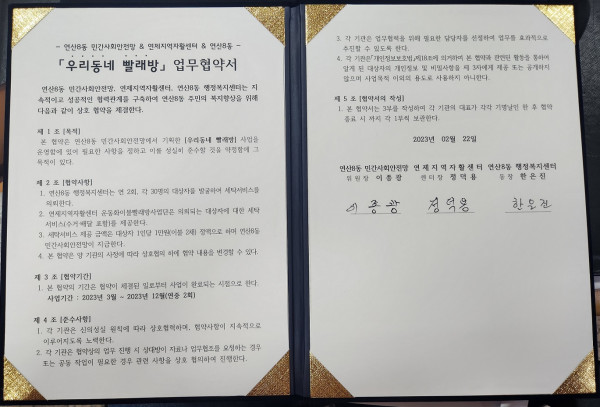 - 연산8동 민간사회안전망 & 연제지역자활센터 & 연산8동 -
「우리동네 빨래방」 업무협약서
연산8동 민간사회안전망, 연제지역자활센터, 연산8동 행정복지센터는 지
속적이고 성공적인 협력관계를 구축하여 연산8동 주민의 복지향상을 위해
다음과 같이 상호 협약을 체결한다.
제 1 조 [목적]
본 협약은 연산8동 민간사회안전망에서 기획한 [우리동네 빨래방] 사업을
운영함에 있어 필요한 사항을 정하고 이를 성실히 준수할 것을 약정함에 그
목적이 있다.
제 2 조 [협약사항]
1. 연산8동 행정복지센터는 연 2회, 각 30명의 대상자를 발굴하여 세탁서비스를
의뢰한다.
2. 연제지역자활센터 공동화이불빨래방사업단은 의뢰되는 대상자에 대한 세탁
서비스(수거·배달 포함)를 제공한다.
3. 세탁서비스 제공 금액은 대상자 1인당 1만원(이불 3채) 정액으로 하며 연산8동
민간사회안전망이 지급한다.
4. 본 협약은 양 기관의 사정에 따라 상호협의 하에 협약 내용을 변경할 수 있다.
제 3 조 [협약기간]
1. 본 협약의 기간은 협약이 체결된 일로부터 사업이 완료되는 시점으로 한다.
사업기간 : 2023년 3월 ~ 2023년 12월(연중 2회)
제 4 조 [준수사항]
1. 각 기관은 신의성실 원칙에 따라 상호협력하며, 협약사항이 지속적으로
이루어지도록 노력한다.
2. 각 기관은 협약상의 업무 진행 시 상대방이 자료나 업무협조를 요청하는 경우
또는 공동 작업이 필요한 경우 관련 사항을 상호 협의하여 진행한다.
3. 각 기관은 업무협력을 위해 필요한 담당자를 선정하여 업무를 효과적으로
추진할 수 있도록 한다.
4. 각 기관은「개인정보보호법」제18조에 의거하여 본 협약과 관련된 활동을 통하여
알게 된 대상자의 개인정보 및 비밀사항을 제 3자에게 제공 또는 공개하지
않으며 사업목적 이외의 용도로 사용하지 아니한다.
제 5 조 [협약서의 작성]
1. 본 협약서는 3부를 작성하며 각 기관의 대표가 각각 기명날인 한 후 협약
종료 시 까지 각 1부씩 보관한다.
2023년 02월 22일
연산8동 민간사회안전망 연제지역자활센터 연산8동 행정복지센터
위원장 이종광 센터장 정덕용 동장 한은진
이종광 정덕용 한은진